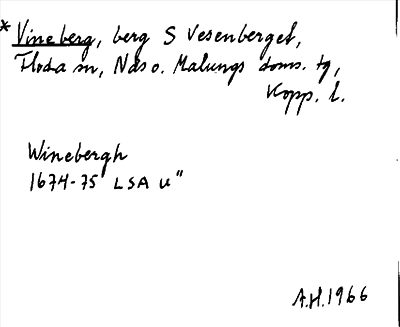 * Vineberg, berg S Vesenberget,
Floda sn, Nås o. Malungs doms. tg,
Kopp. l.
Winebergh
1674-75 LSA u"
A.H. 1966